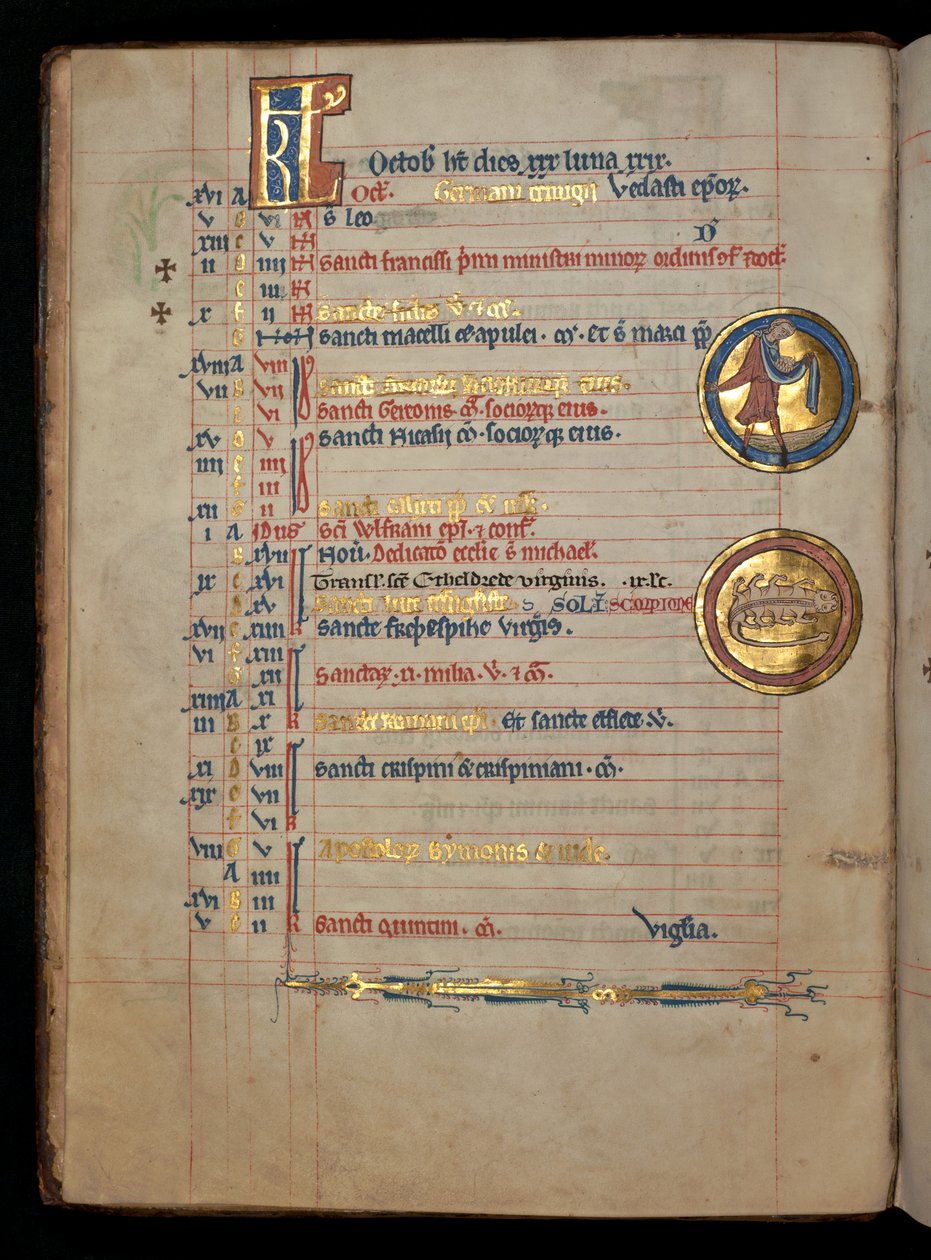 KL Octob ht dies xxx luna xxix.
xvi A Oct. Germani Vedasti epor.
v B vi N S leo
xiii c v N D
ii D iiii N Sancti francisci pmi ministri minor ordinis
e iii N
x f ii N Sancte fidis v &
G Non Sancti marcelli & apulei. m. Et S marci pp
xviii A viii
vii B vii Sancti eius.
c vi Sancti Gereonis. m. sociorq eius.
xv D v Sancti Nicasii m. sociorq eius.
iiii e iiii
f iii
xii G ii Sancti calixti pp & m
i A Idus Sci Wlfrani epi. & conf.
B xvii Nou. Dedicato ecclie S michael.
ix c xvi Transl. scē Etheldrede virginis. .ix. lc.
D xv Sancti luce euangeliste. SOL I SCORPIONE
xvii e xiiii K Sancte virginis.
vi f xiii
G xii Sanctar. xi. milia. v. & m.
xiiii A xi
iii B x K Sancti Romani epi. Et sancte v.
c ix
xi D viii Sancti crispini & crispiniani. m.
xix e vii
f vi K
viii G v Apostolor Symonis & iude.
A iiii
xvi B iii
v c ii K Sancti quintini. m. Viglia.